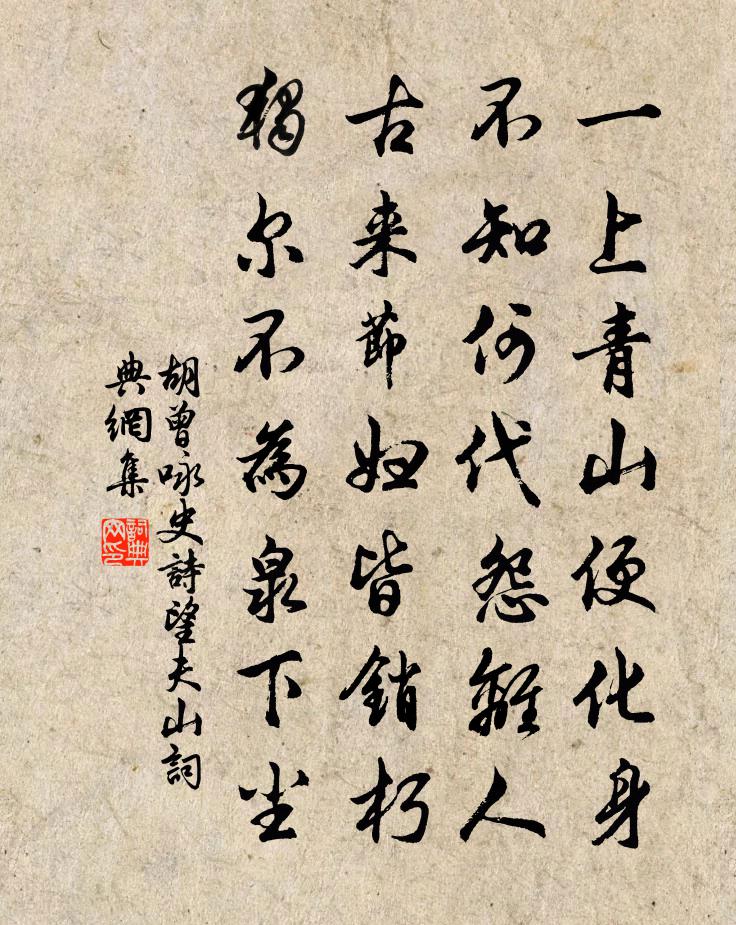 一上青山便化身
不知何代怨離人
古来節妇皆銷朽
獨尔不為泉下尘
胡曾咏史詩望夫山詞
典網集
詞典
网印